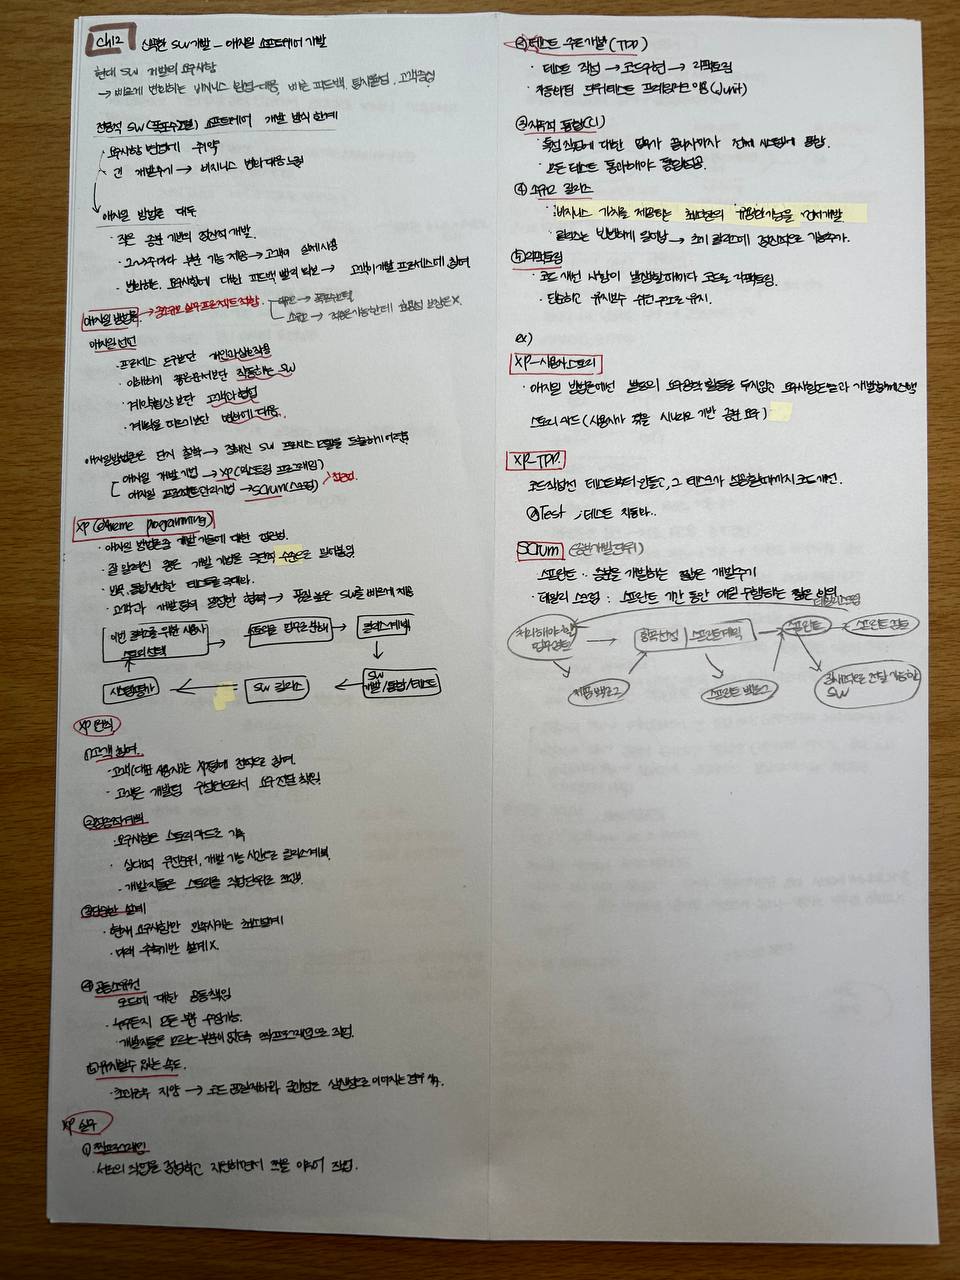 Ch12 신속한 SW 개발 - 애자일 소프트웨어 개발
현대 SW 개발의 요구사항
→ 빠르게 변화하는 비즈니스 환경 대응, 빠른 피드백, 고객중심
전통적 SW(폭포수모델) 소프트웨어 개발 방식 한계
요구사항 변경에 취약
긴 개발주기 → 비즈니스 변화 대응 느림
애자일 방법론 대두
· 작은 증분 기반의 점진적 개발.
· 2~3주마다 부분 기능 제공 → 고객이 실제사용
· 변화하는 요구사항에 대한 피드백 빨리 확보 → 고객이 개발 프로세스에 참여
애자일 방법론 → 중소규모 실무 프로젝트 적합
대규모 → 폭포수모델
소규모 → 적용가능한데 효율성 보장은 X.
애자일 선언
· 프로세스 도구보단 개인과 상호작용
· 이해하기 좋은 문서보단 작동하는 SW
· 계약협상 보단 고객과 협업
· 계획을 따르기보단 변화에 대응.
애자일방법론은 단지 철학 → 절대적 SW 프로세스 모델로 도출하기 어려움
애자일 개발 기법 → XP(익스트림 프로그래밍)
애자일 프로젝트관리기법 → Scrum(스크럼)
XP (extreme programming)
· 애자일 방법론중 개발 기술에 대한 방법론.
· 잘 알려진 좋은 개발 기법을 극단적 수준으로 끌어올림
· 반복, 통합 빈번한 테스트를 극대화.
· 고객과 개발팀의 긴밀한 협력 → 품질 높은 SW를 빠르게 제공
이번 릴리스를 위한 사용자 스토리 선택
스토리를 업무로 분해
릴리스 계획
SW 개발/통합/테스트
SW 릴리스
시스템평가
XP 원칙
① 고객 참여.
· 고객(대표 사용자)는 XP팀에 전적으로 참여.
· 고객은 개발팀 구성원으로서 요구 전달 책임
② 점증적계획
· 요구사항은 스토리 카드로 기록
· 상대적 우선순위, 개발 가능 시간으로 릴리스계획.
· 개발자들은 스토리를 작업단위로 쪼갠다.
③ 단순한 설계
· 현재 요구사항만 만족시키는 최소설계
· 미래 추측기반 설계 X.
④ 공동소유권
코드에 대한 공동책임
· 누구든지 모든 부분 수정가능.
· 개발자들은 모르는 부분이 없도록 짝프로그래밍으로 작업.
⑤ 유지할수 있는 속도.
· 초과근무 지양 → 코드 품질저하와 중간정도 생산성으로 이어지는 경우 多.
XP 실무
① 짝프로그래밍
· 서로의 작업을 점검하고 지원하면서 짝을 이루어 작업.
② 테스트 주도개발 (TDD)
· 테스트 작성 → 코드구현 → 리팩토링
· 자동화된 단위테스트 프레임워크 이용 (Junit)
③ 지속적 통합(CI)
· 특정 작업에 대한 업무가 끝나자마자 전체 시스템에 통합.
· 모든 테스트 통과해야 통합성공.
④ 소규모 릴리스
· 비즈니스 가치를 제공하는 최소단의 유용한기능을 먼저개발
· 릴리스는 빈번하게 일어남 → 초기 릴리스에 점진적으로 기능추가.
⑤ 리팩토링
· 코드 개선 사항이 발생할때마다 코드를 리팩토링.
· 단순하고 유지보수 쉬운구조로 유지.
ex)
XP-사용자스토리
· 애자일 방법론에선 별도의 요구공학 활동을 두지않고 요구사항도출과 개발함께수행
스토리 카드 (사용자가 겪을 시나리오 기반 공분 요구)
XP-TDD.
코드작성전 테스트부터 만들고, 그 테스트가 성공할때까지 코드개선.
@Test ; 테스트 자동화..
Scrum (증분개발단위)
스프린트 : 증분을 개발하는 짧은 개발주기
· 데일리 스크럼 : 스프린트 기간 동안 매일 수행하는 짧은 회의
데일리스크럼
처리해야할 업무검토
항목선정
스프린트계획
스프린트
스프린트 검토
제품 백로그
스프린트 백로그
잠재적으로 전달 가능한 SW